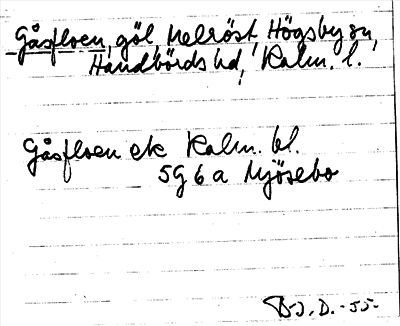 Gåsfloen, göl, Melröst, Högsby sn,
Handbörds hd, Kalm. l.
Gåsfloen ek Kalm. bl.
5G 6a Mjösebo
D-55-